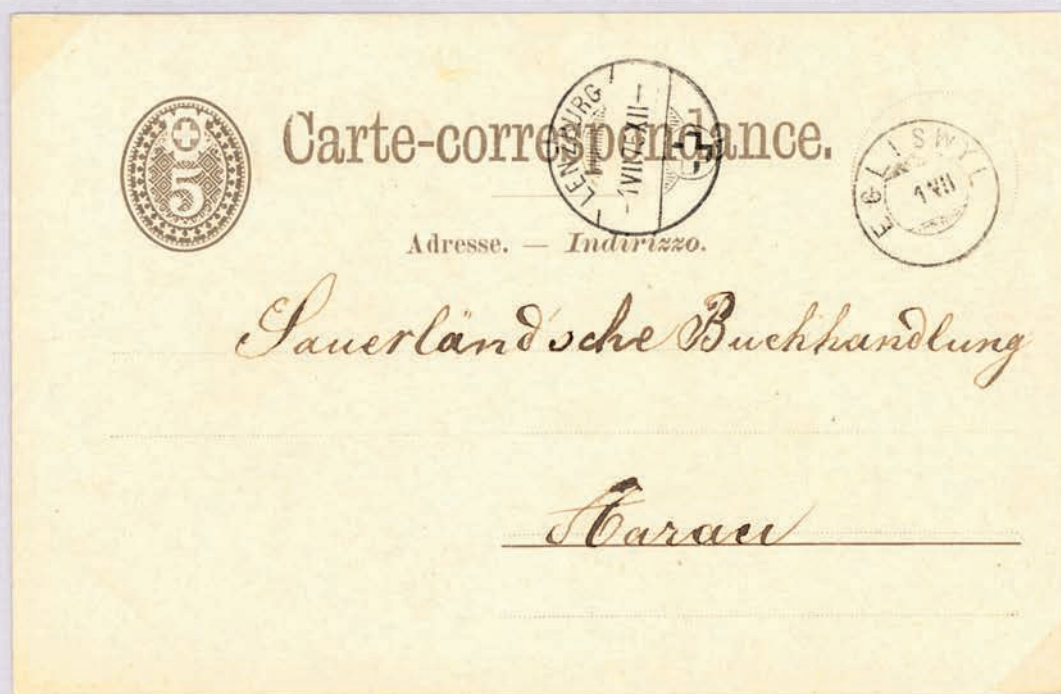 5
Carte-correspondance.
LENZBURG
-1 VII 75 XII-
EGLISWYL
1 VII
Adresse. — Indirizzo.
Sauerländ'sche Buchhandlung
Aarau